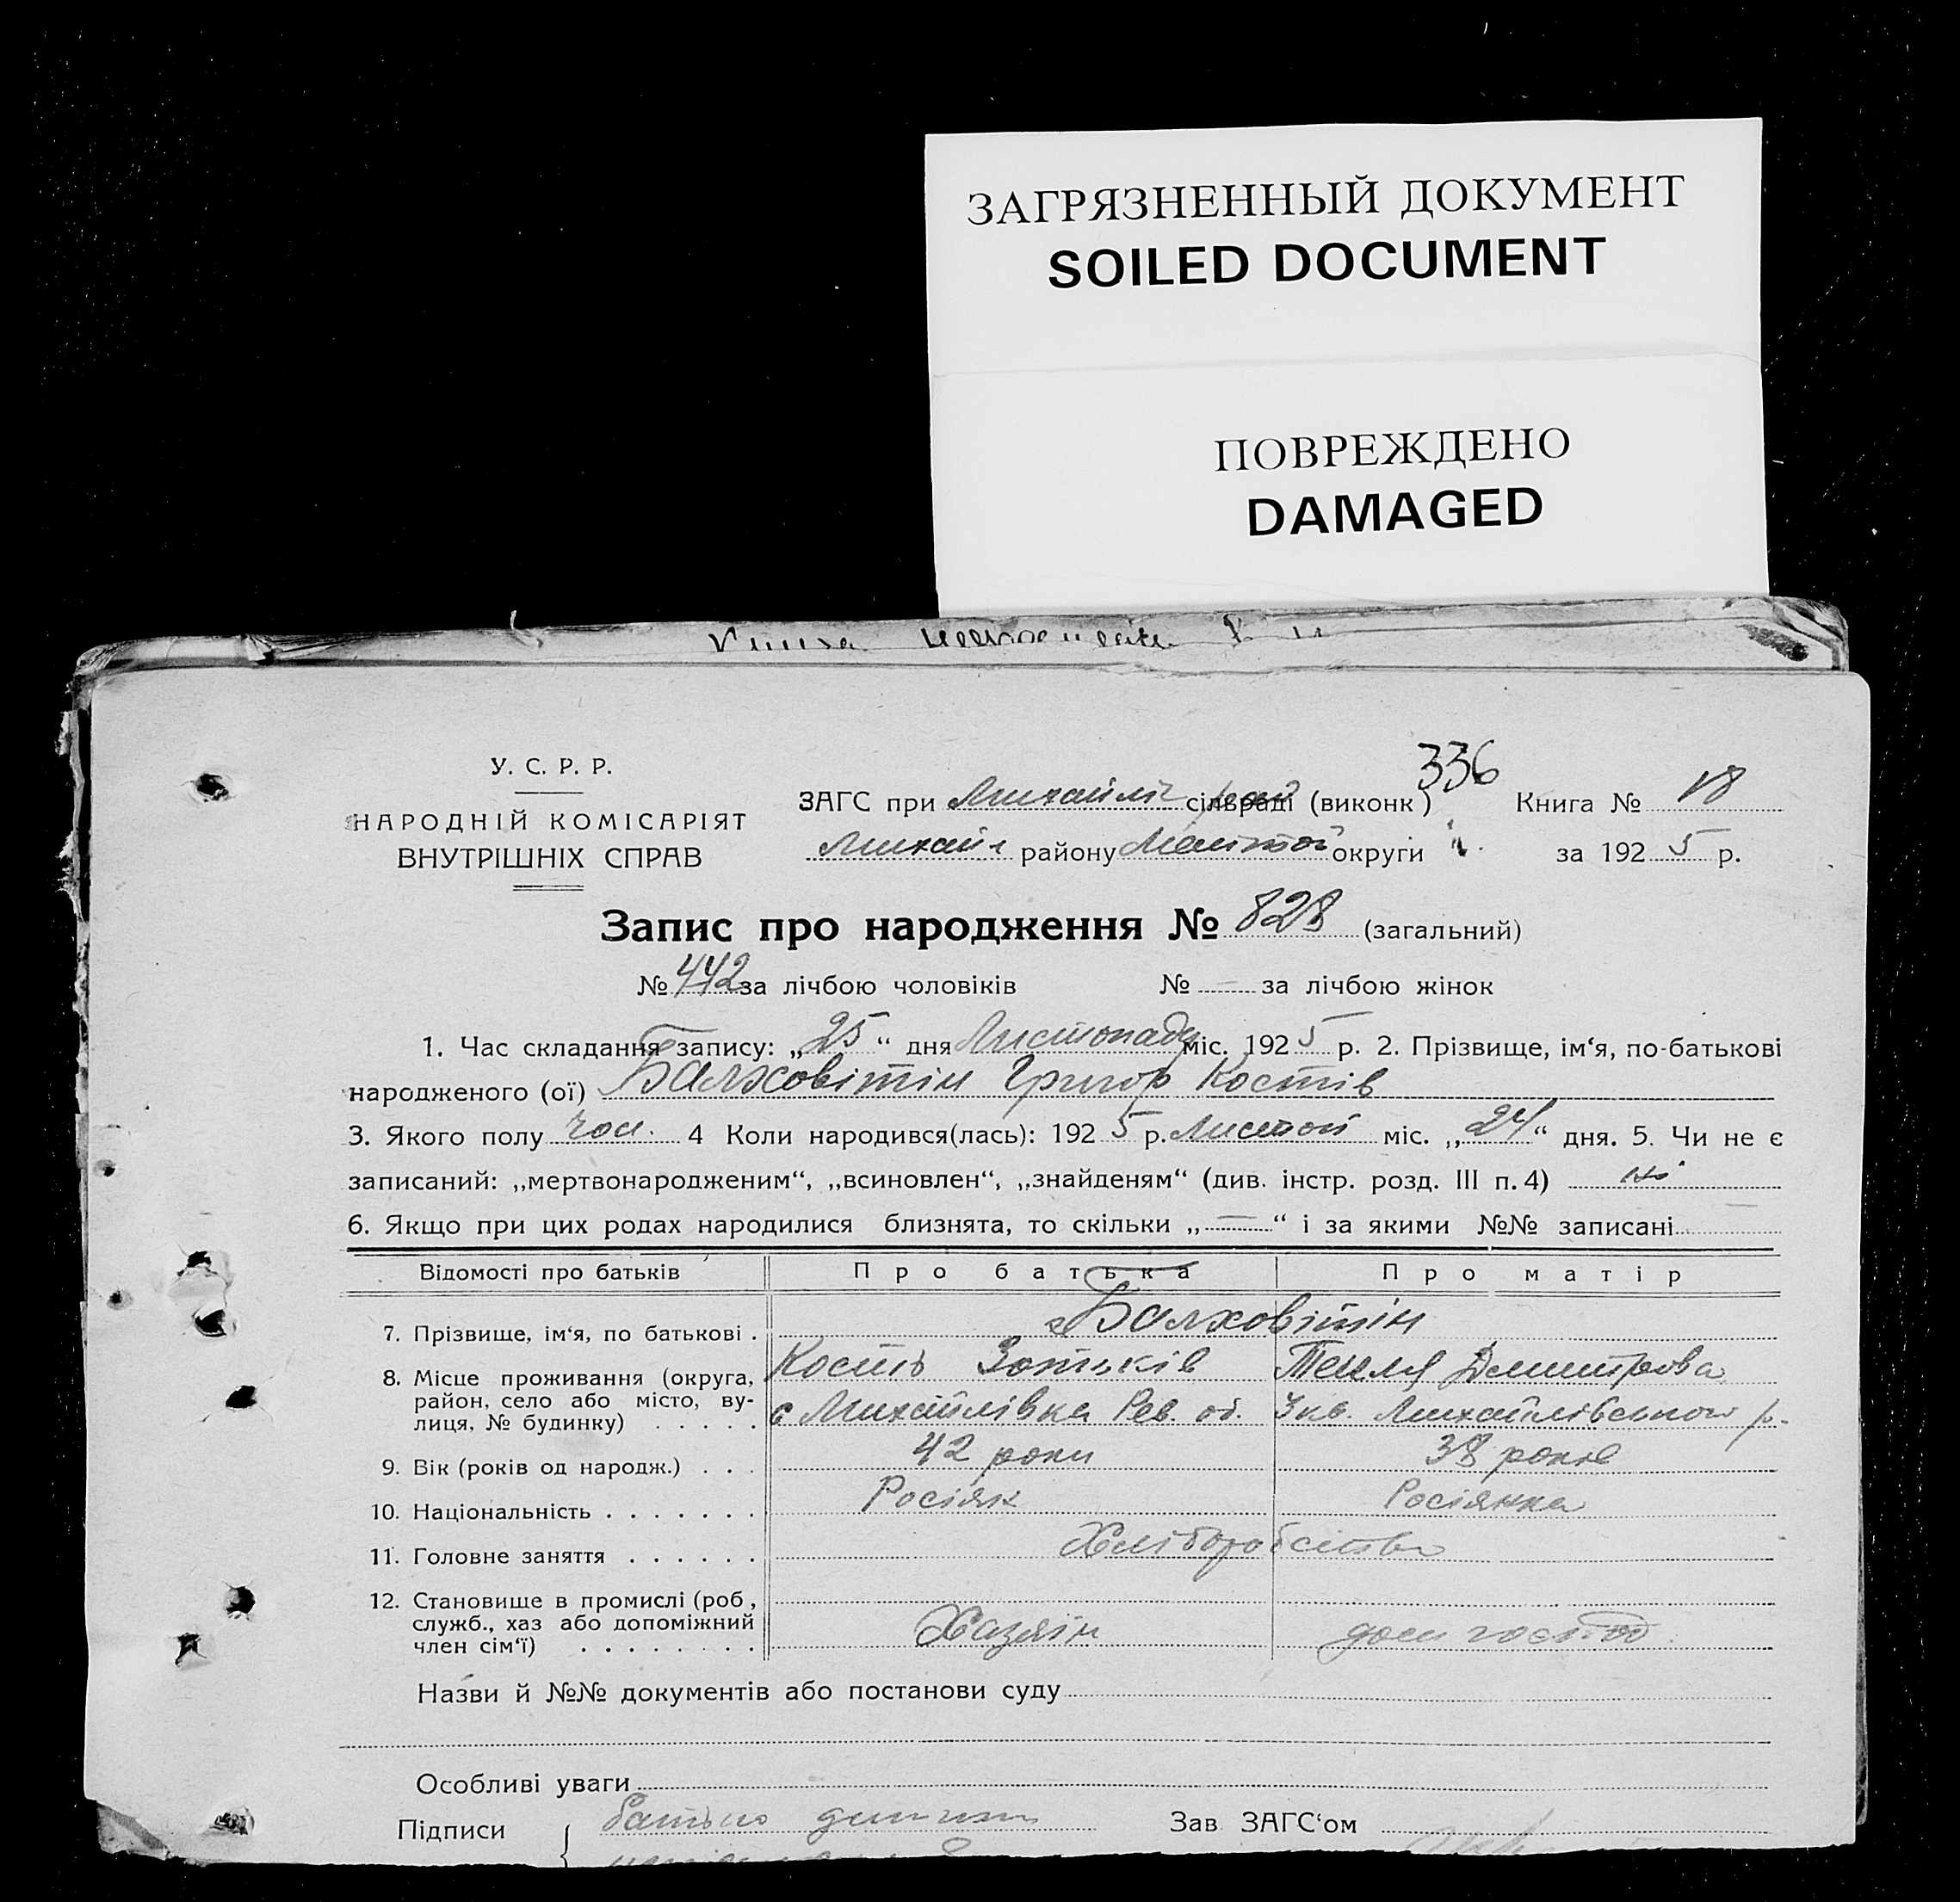 ЗАГРЯЗНЕННЫЙ ДОКУМЕНТ
SOILED DOCUMENT
ПОВРЕЖДЕНО
DAMAGED
336
У. С. Р. Р.
НАРОДНІЙ КОМІСАРІЯТ
ВНУТРІШНІХ СПРАВ
ЗАГС при Михайлів сільраді (виконк) Книга № 18
Михайл району Мелітоп округи за 1925 р.
Запис про народження № 828 (загальний)
№ 442 за лічбою чоловіків № — за лічбою жінок
1. Час складання запису: „25“ дня Листопаду міс. 1925 р. 2. Прізвище, ім‘я, по-батькові
народженого (ої) Балховітін Григор Костів
3. Якого полу чол. 4 Коли народився(лась): 1925 р. Листоп міс. „24“ дня. 5. Чи не є
записаний: „мертвонародженим“, „всиновлен“, „знайденям“ (див. інстр. розд. III п. 4) ні
6. Якщо при цих родах народилися близнята, то скільки „—“ і за якими №№ записані —
Відомості про батьків Про батька Про матір
7. Прізвище, ім‘я, по батькові . Балховітін
Кость Зотьків Текля Дмитрова
8. Місце проживання (округа, район, село або місто, вулиця, № будинку) . . . . . с Михайлівка Рев. об. Михайлівського р.
9. Вік (років од народж.) . . . 42 роки 38 років
10. Національність . . . . . . . Росіян Росіянка
11. Головне заняття . . . . . . Хліборобство
12. Становище в промислі (роб, служб., хаз або допоміжний член сім‘ї) . . . . . . . . Хазяїн дом господ
Назви й №№ документів або постанови суду
Особливі уваги
Підписи { батько дитини Зав ЗАГС‘ом